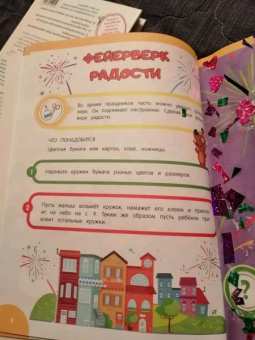 ФЕЙЕРВЕРК
РАДОСТИ
Во время праздников часто можно
верк. Он поднимает настроение. Сделай
верк радости.
ЧТО ПОНАДОБИТСЯ
Цветная бумага или картон, клей, ножницы.
1 Нарежьте кружки бумаги разных цветов и размеров.
2 Пусть малыш возьмёт кружок, намажет его клеем и прикле-
ит на небо на с. 9. Таким же образом пусть ребёнок при-
клеит остальные кружки.
8